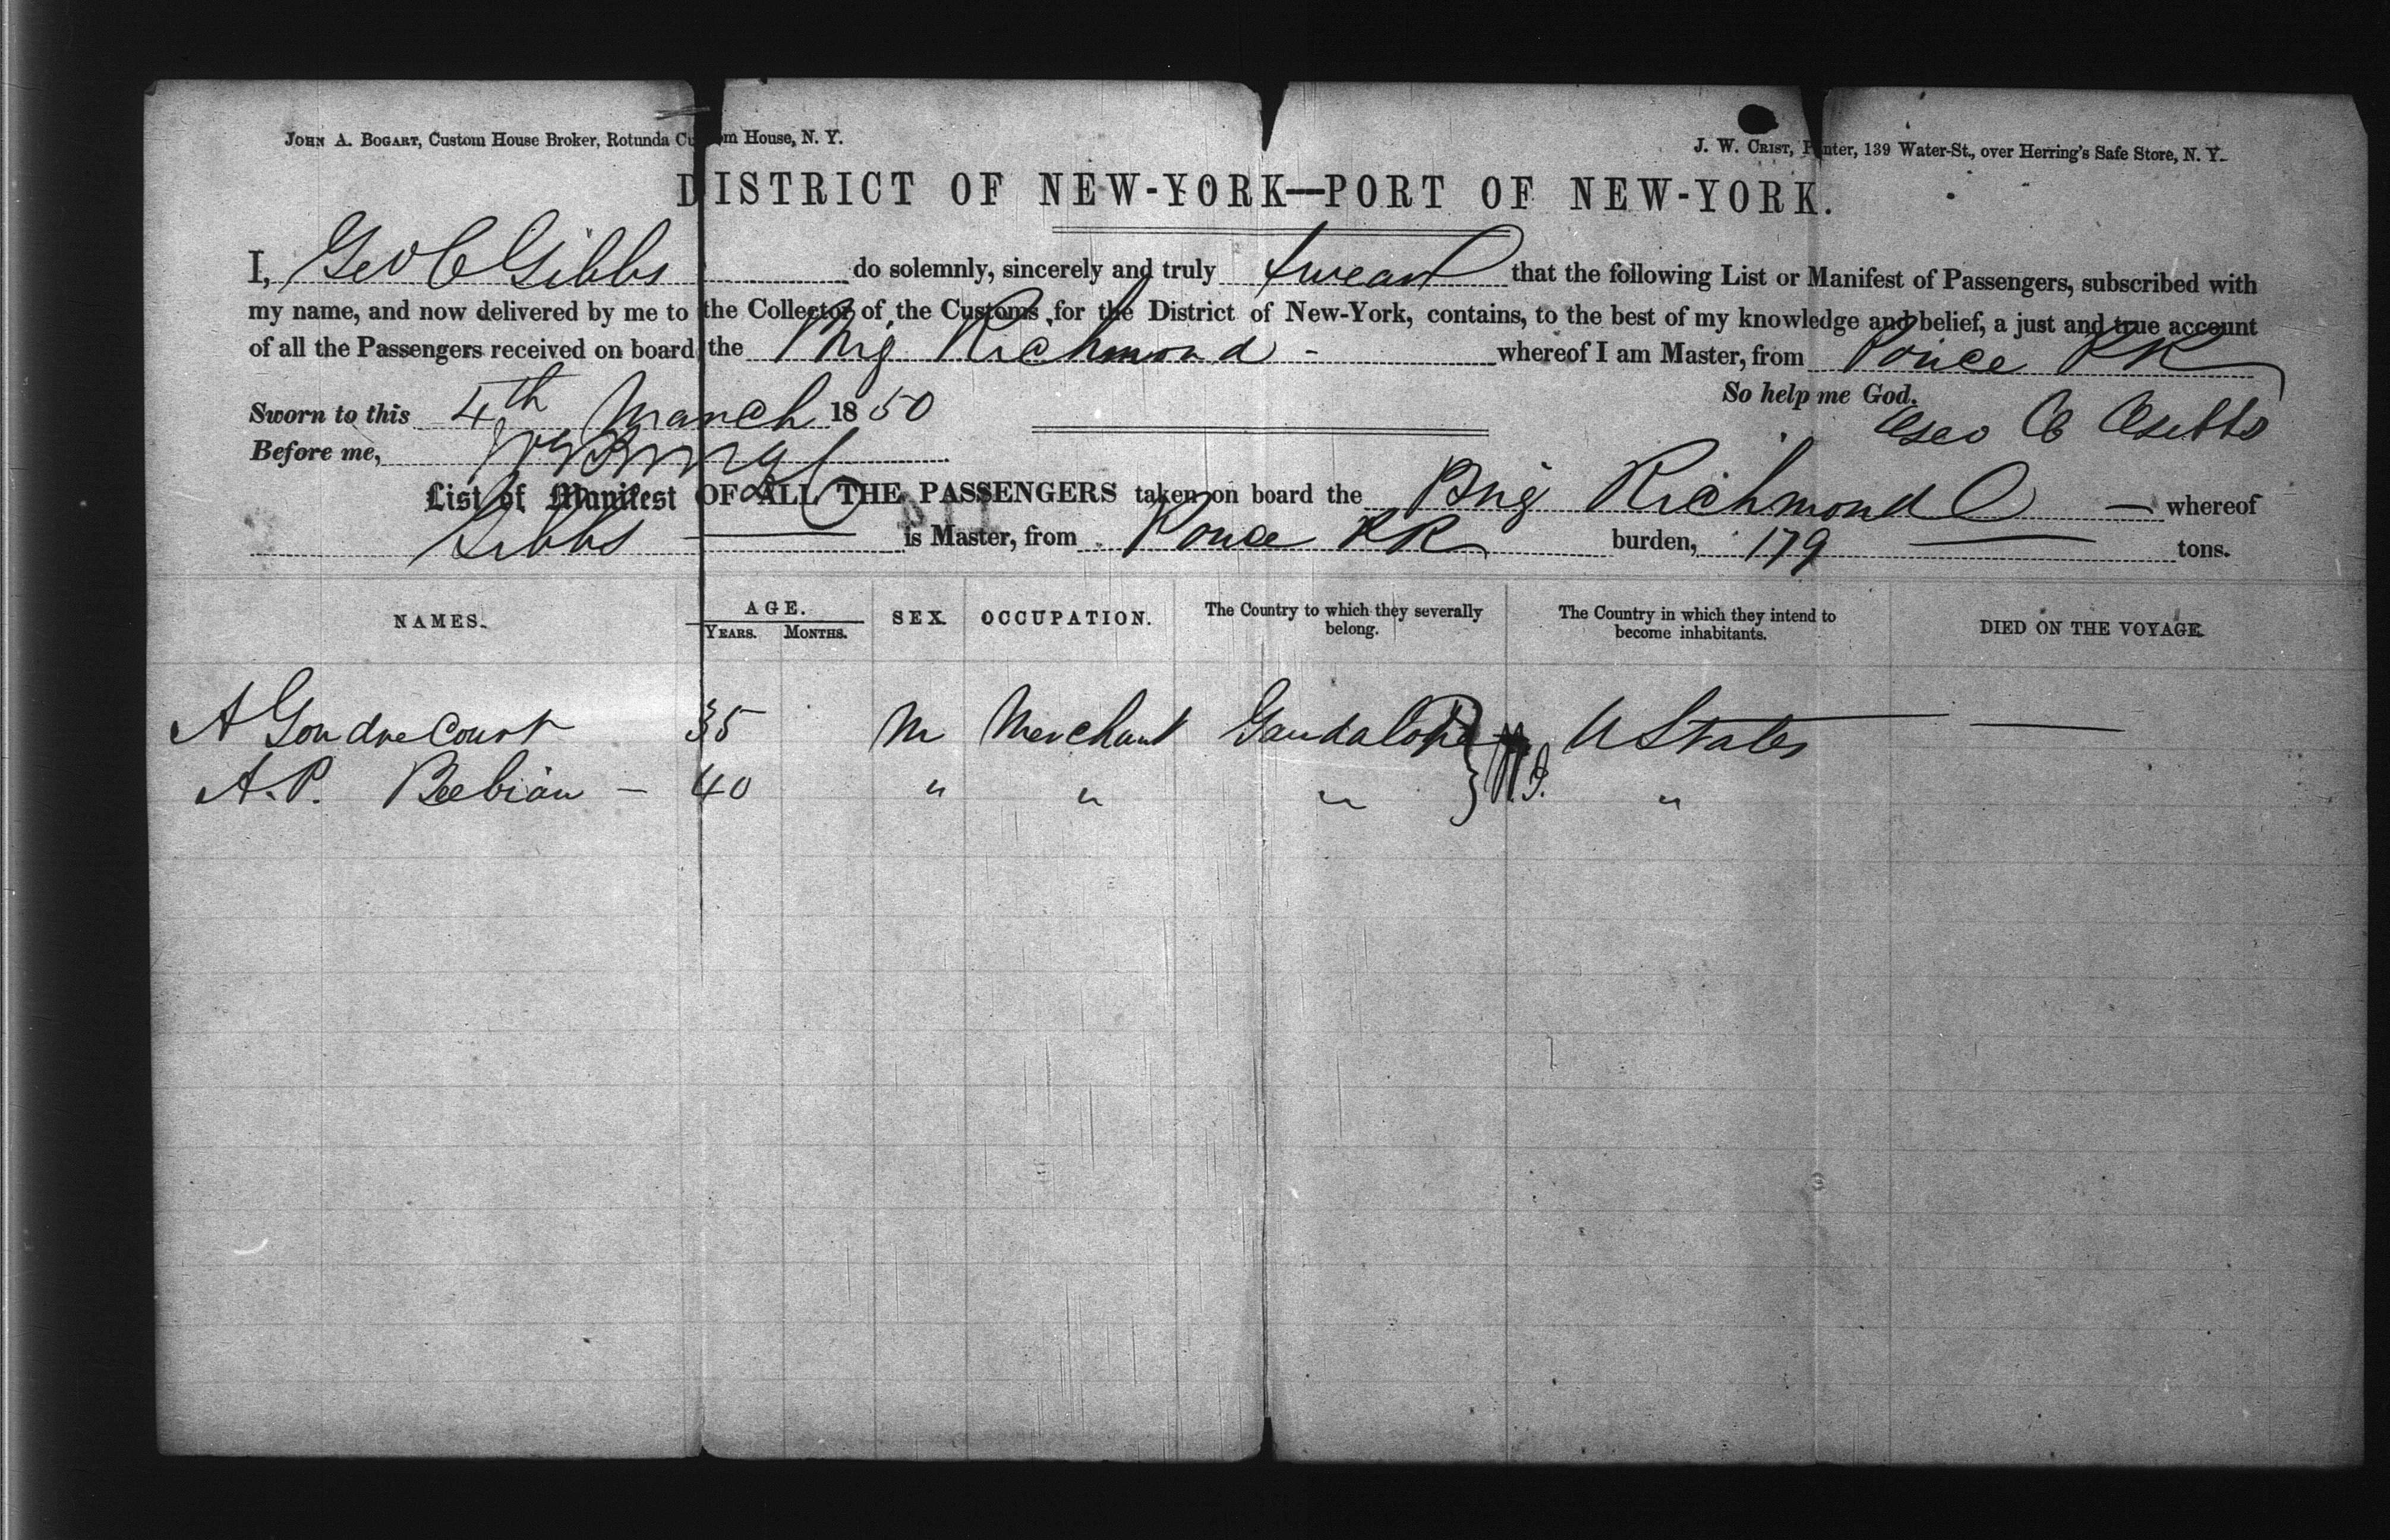 JOHN A. BOGART, Custom House Broker, Rotunda Custom House, N. Y.
J. W. CRIST, Printer, 139 Water-St., over Herring's Safe Store, N. Y.
DISTRICT OF NEW-YORK—PORT OF NEW-YORK.
I, Geo C Gibbs do solemnly, sincerely and truly swear that the following List or Manifest of Passengers, subscribed with
my name, and now delivered by me to the Collector of the Customs for the District of New-York, contains, to the best of my knowledge and belief, a just and true account
of all the Passengers received on board the Brig Richmond - whereof I am Master, from Ponce PR
So help me God.
Sworn to this 4th March 1850
Geo C Gibbs
Before me,
List of Manifest OF ALL THE PASSENGERS taken on board the Brig Richmond — whereof
Gibbs — is Master, from Ponce PR burden, 179 — tons.
NAMES. AGE. SEX. OCCUPATION. The Country to which they severally belong. The Country in which they intend to become inhabitants. DIED ON THE VOYAGE.
YEARS. MONTHS.
A Gondrecourt 35 M Merchant Gaudalope W.I. U States —
A. P. Beebian — 40 " " " "